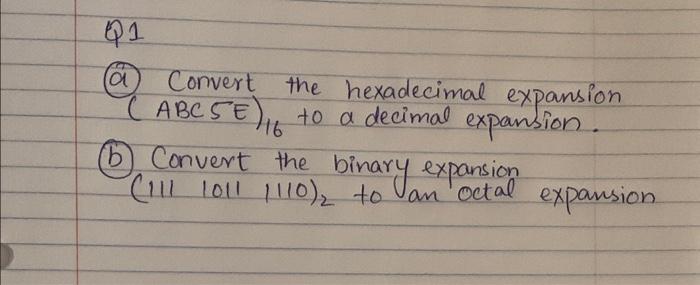 Q1
(a) Convert the hexadecimal expansion
(ABC5E)16 to a decimal expansion.
(b) Convert the binary expansion
(111 1011 1110)2 to an octal expansion